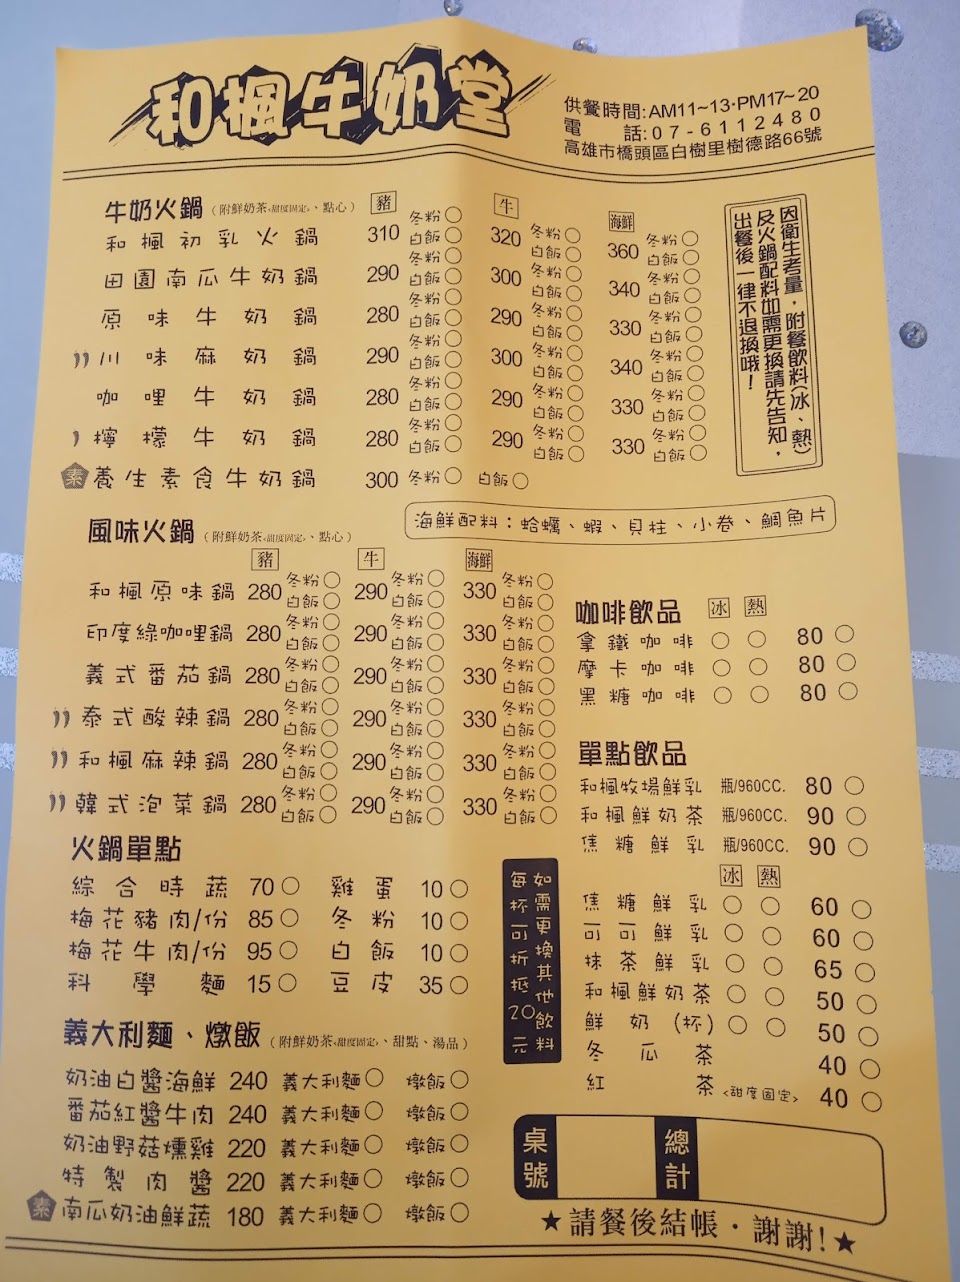 和楓牛奶堂
供餐時間:AM11~13·PM17~20
電 話:07-6112480
高雄市橋頭區白樹里樹德路66號
牛奶火鍋(附鮮奶茶<甜度固定>、點心) 豬 牛 海鮮
和楓初乳火鍋 310 冬粉○ 白飯○ 320 冬粉○ 白飯○ 360 冬粉○ 白飯○
田園南瓜牛奶鍋 290 冬粉○ 白飯○ 300 冬粉○ 白飯○ 340 冬粉○ 白飯○
原味牛奶鍋 280 冬粉○ 白飯○ 290 冬粉○ 白飯○ 330 冬粉○ 白飯○
川味麻奶鍋 290 冬粉○ 白飯○ 300 冬粉○ 白飯○ 340 冬粉○ 白飯○
咖哩牛奶鍋 280 冬粉○ 白飯○ 290 冬粉○ 白飯○ 330 冬粉○ 白飯○
檸檬牛奶鍋 280 冬粉○ 白飯○ 290 冬粉○ 白飯○ 330 冬粉○ 白飯○
素 養生素食牛奶鍋 300 冬粉○ 白飯○
因衛生考量,附餐飲料(冰、熱)
及火鍋配料如需更換請先告知,
出餐後一律不退換哦!
海鮮配料:蛤蠣、蝦、貝柱、小卷、鯛魚片
風味火鍋(附鮮奶茶<甜度固定>、點心)
豬 牛 海鮮
和楓原味鍋 280 冬粉○ 白飯○ 290 冬粉○ 白飯○ 330 冬粉○ 白飯○
印度綠咖哩鍋 280 冬粉○ 白飯○ 290 冬粉○ 白飯○ 330 冬粉○ 白飯○
義式番茄鍋 280 冬粉○ 白飯○ 290 冬粉○ 白飯○ 330 冬粉○ 白飯○
泰式酸辣鍋 280 冬粉○ 白飯○ 290 冬粉○ 白飯○ 330 冬粉○ 白飯○
和楓麻辣鍋 280 冬粉○ 白飯○ 290 冬粉○ 白飯○ 330 冬粉○ 白飯○
韓式泡菜鍋 280 冬粉○ 白飯○ 290 冬粉○ 白飯○ 330 冬粉○ 白飯○
火鍋單點
綜合時蔬 70○ 雞蛋 10○
梅花豬肉/份 85○ 冬粉 10○
梅花牛肉/份 95○ 白飯 10○
科學麵 15○ 豆皮 35○
義大利麵、燉飯(附鮮奶茶<甜度固定>、甜點、湯品)
奶油白醬海鮮 240 義大利麵○ 燉飯○
番茄紅醬牛肉 240 義大利麵○ 燉飯○
奶油野菇燻雞 220 義大利麵○ 燉飯○
特製肉醬 220 義大利麵○ 燉飯○
素 南瓜奶油鮮蔬 180 義大利麵○ 燉飯○
咖啡飲品 冰 熱
拿鐵咖啡 ○ ○ 80 ○
摩卡咖啡 ○ ○ 80 ○
黑糖咖啡 ○ ○ 80 ○
單點飲品
和楓牧場鮮乳 瓶/960CC. 80 ○
和楓鮮奶茶 瓶/960CC. 90 ○
焦糖鮮乳 瓶/960CC. 90 ○
冰 熱
焦糖鮮乳 ○ ○ 60 ○
可可鮮乳 ○ ○ 60 ○
抹茶鮮乳 ○ ○ 65 ○
和楓鮮奶茶 ○ ○ 50 ○
鮮奶(杯) ○ ○ 50 ○
冬瓜茶 40 ○
紅茶 <甜度固定> 40 ○
如需更換其他飲料
每杯可折抵20元
桌號 總計
★請餐後結帳·謝謝!★